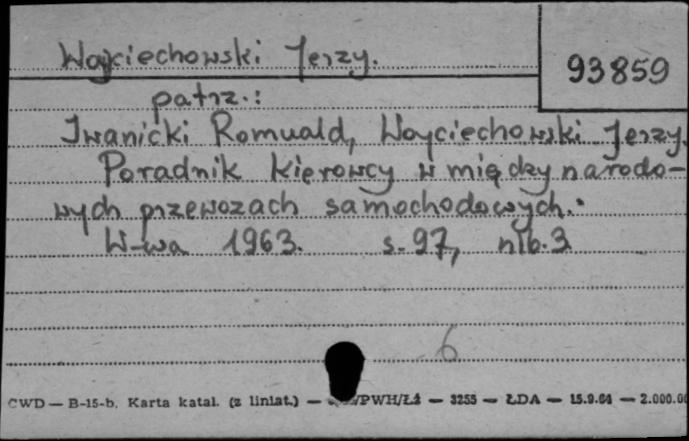 Wojciechowski Jerzy.
93859
patrz.:
Iwanicki Romuald, Woyciechowski Jerzy.
Poradnik kierowcy w między narodo-
wych przewozach samochodowych.
W-wa 1963. s. 97, nlb. 3
6
CWD — B-15-b. Karta katal. (z liniat.) — /PWH/Łź — 3255 — ŁDA — 15.9.64 — 2.000.00